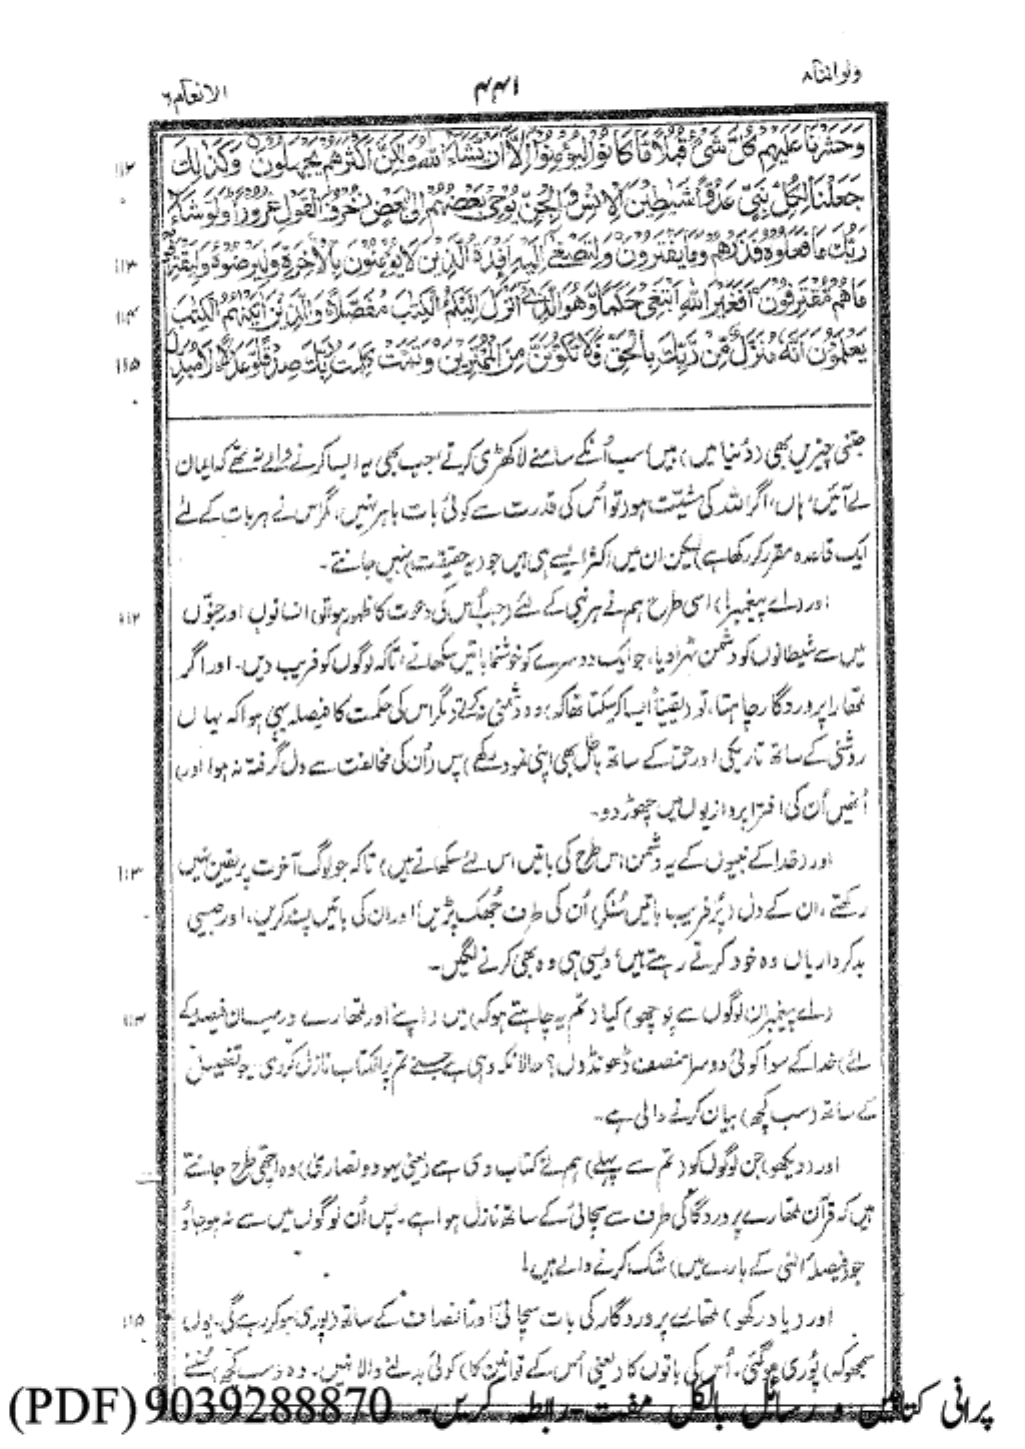 ولواننا۸
۴۴۱
الانعام۶
وَحَشَرْنَا عَلَيْهِمْ كُلَّ شَيْءٍ قُبُلًا مَّا كَانُوْا لِيُؤْمِنُوْٓا اِلَّآ اَنْ يَّشَآءَ اللّٰهُ وَلٰكِنَّ اَكْثَرَهُمْ يَجْهَلُوْنَ وَكَذٰلِكَ
۱۱۲
جَعَلْنَا لِكُلِّ نَبِيٍّ عَدُوًّا شَيٰطِيْنَ الْاِنْسِ وَالْجِنِّ يُوْحِيْ بَعْضُهُمْ اِلٰى بَعْضٍ زُخْرُفَ الْقَوْلِ غُرُوْرًا وَلَوْ شَآءَ
رَبُّكَ مَا فَعَلُوْهُ فَذَرْهُمْ وَمَا يَفْتَرُوْنَ وَلِتَصْغٰٓى اِلَيْهِ اَفْـِٕدَةُ الَّذِيْنَ لَا يُؤْمِنُوْنَ بِالْاٰخِرَةِ وَلِيَرْضَوْهُ وَلِيَقْتَرِفُوْا
۱۱۳
مَا هُمْ مُّقْتَرِفُوْنَ اَفَغَيْرَ اللّٰهِ اَبْتَغِيْ حَكَمًا وَّهُوَ الَّذِيْٓ اَنْزَلَ اِلَيْكُمُ الْكِتٰبَ مُفَصَّلًا وَالَّذِيْنَ اٰتَيْنٰهُمُ الْكِتٰبَ
۱۱۴
يَعْلَمُوْنَ اَنَّهٗ مُنَزَّلٌ مِّنْ رَّبِّكَ بِالْحَقِّ فَلَا تَكُوْنَنَّ مِنَ الْمُمْتَرِيْنَ وَتَمَّتْ كَلِمَتُ رَبِّكَ صِدْقًا وَّعَدْلًا لَا مُبَدِّلَ
۱۱۵
جتنی چیزیں بھی (دنیا میں) ہیں، سب اُنکے سامنے لا کھڑی کرتے، جب بھی یہ ایسا کرنے والے نہ تھے کہ ایمان
لے آئیں، ہاں، اگر اللہ کی مشیّت ہو (تو اُس کی قدرت سے کوئی بات باہر نہیں، مگر اس نے ہر بات کے لئے
ایک قاعدہ مقرر کر رکھا ہے) لیکن ان میں اکثر ایسے ہی ہیں جو (یہ حقیقت) نہیں جانتے۔
اور (اے پیغمبر!) اسی طرح ہم نے ہر نبی کے لئے (جب اُس کی دعوت کا ظہور ہوا) انسانوں اور جنّوں
۱۱۲
میں سے شیطانوں کو دشمن ٹھرا دیا، جو ایک دوسرے کو خوشنما باتیں سکھاتے، تاکہ لوگوں کو فریب دیں۔ اور اگر
تمھارا پروردگار چاہتا، تو (یقیناً ایسا کر سکتا تھا کہ) وہ دشمنی نہ کرتے (مگر اس کی حکمت کا فیصلہ یہی ہوا کہ یہاں
روشنی کے ساتھ تاریکی اور حق کے ساتھ باطل بھی اپنی نمود رکھے) پس (اُن کی مخالفت سے دل گرفتہ نہ ہو، اور)
اُنھیں اُن کی افترا پردازیوں میں چھوڑ دو۔
اور (خدا کے نبیوں کے یہ دشمن اس طرح کی باتیں اس لئے سکھاتے ہیں) تاکہ جو لوگ آخرت پر یقین نہیں
۱۱۳
رکھتے، ان کے دل (پُر فریب باتیں سُنکر) اُن کی طرف جُھک پڑیں، اور ان کی باتیں پسند کریں، اور جیسی
بدکرداریاں وہ خود کرتے رہتے ہیں، ویسی ہی وہ بھی کرنے لگیں۔
(اے پیغمبر! ان لوگوں سے پوچھو) کیا (تم یہ چاہتے ہو کہ) میں (اپنے اور تمھارے درمیان فیصلہ کے
۱۱۴
لئے) خدا کے سوا کوئی دوسرا منصف ڈھونڈوں؟ حالانکہ وہی ہے جسنے تم پر الکتاب نازل کر دی جو تفصیل
کے ساتھ (سب کچھ) بیان کرنے والی ہے۔
اور (دیکھو) جن لوگوں کو (تم سے پہلے) ہم نے کتاب دی ہے (یعنی یہود و نصاریٰ) وہ اچھی طرح جانتے
ہیں کہ قرآن تمھارے پروردگار کی طرف سے سچائی کے ساتھ نازل ہوا ہے۔ پس اُن لوگوں میں سے نہ ہو جاؤ
جو (فیصلۂ الٰہی کے بارے میں) شک کرنے والے ہیں!
اور (یاد رکھو) تمھارے پروردگار کی بات سچائی اور انصاف کے ساتھ (پوری ہو کر رہے گی۔ یوں
۱۱۵
سمجھو کہ) پُوری ہو گئی۔ اُس کی باتوں کا (یعنی اُس کے قوانین کا) کوئی بدلنے والا نہیں۔ وہ (سب کچھ) سُننے
پرانی کتابیں و رسائل بالکل مفت۔ رابطہ کریں۔ 9039288870 (PDF)